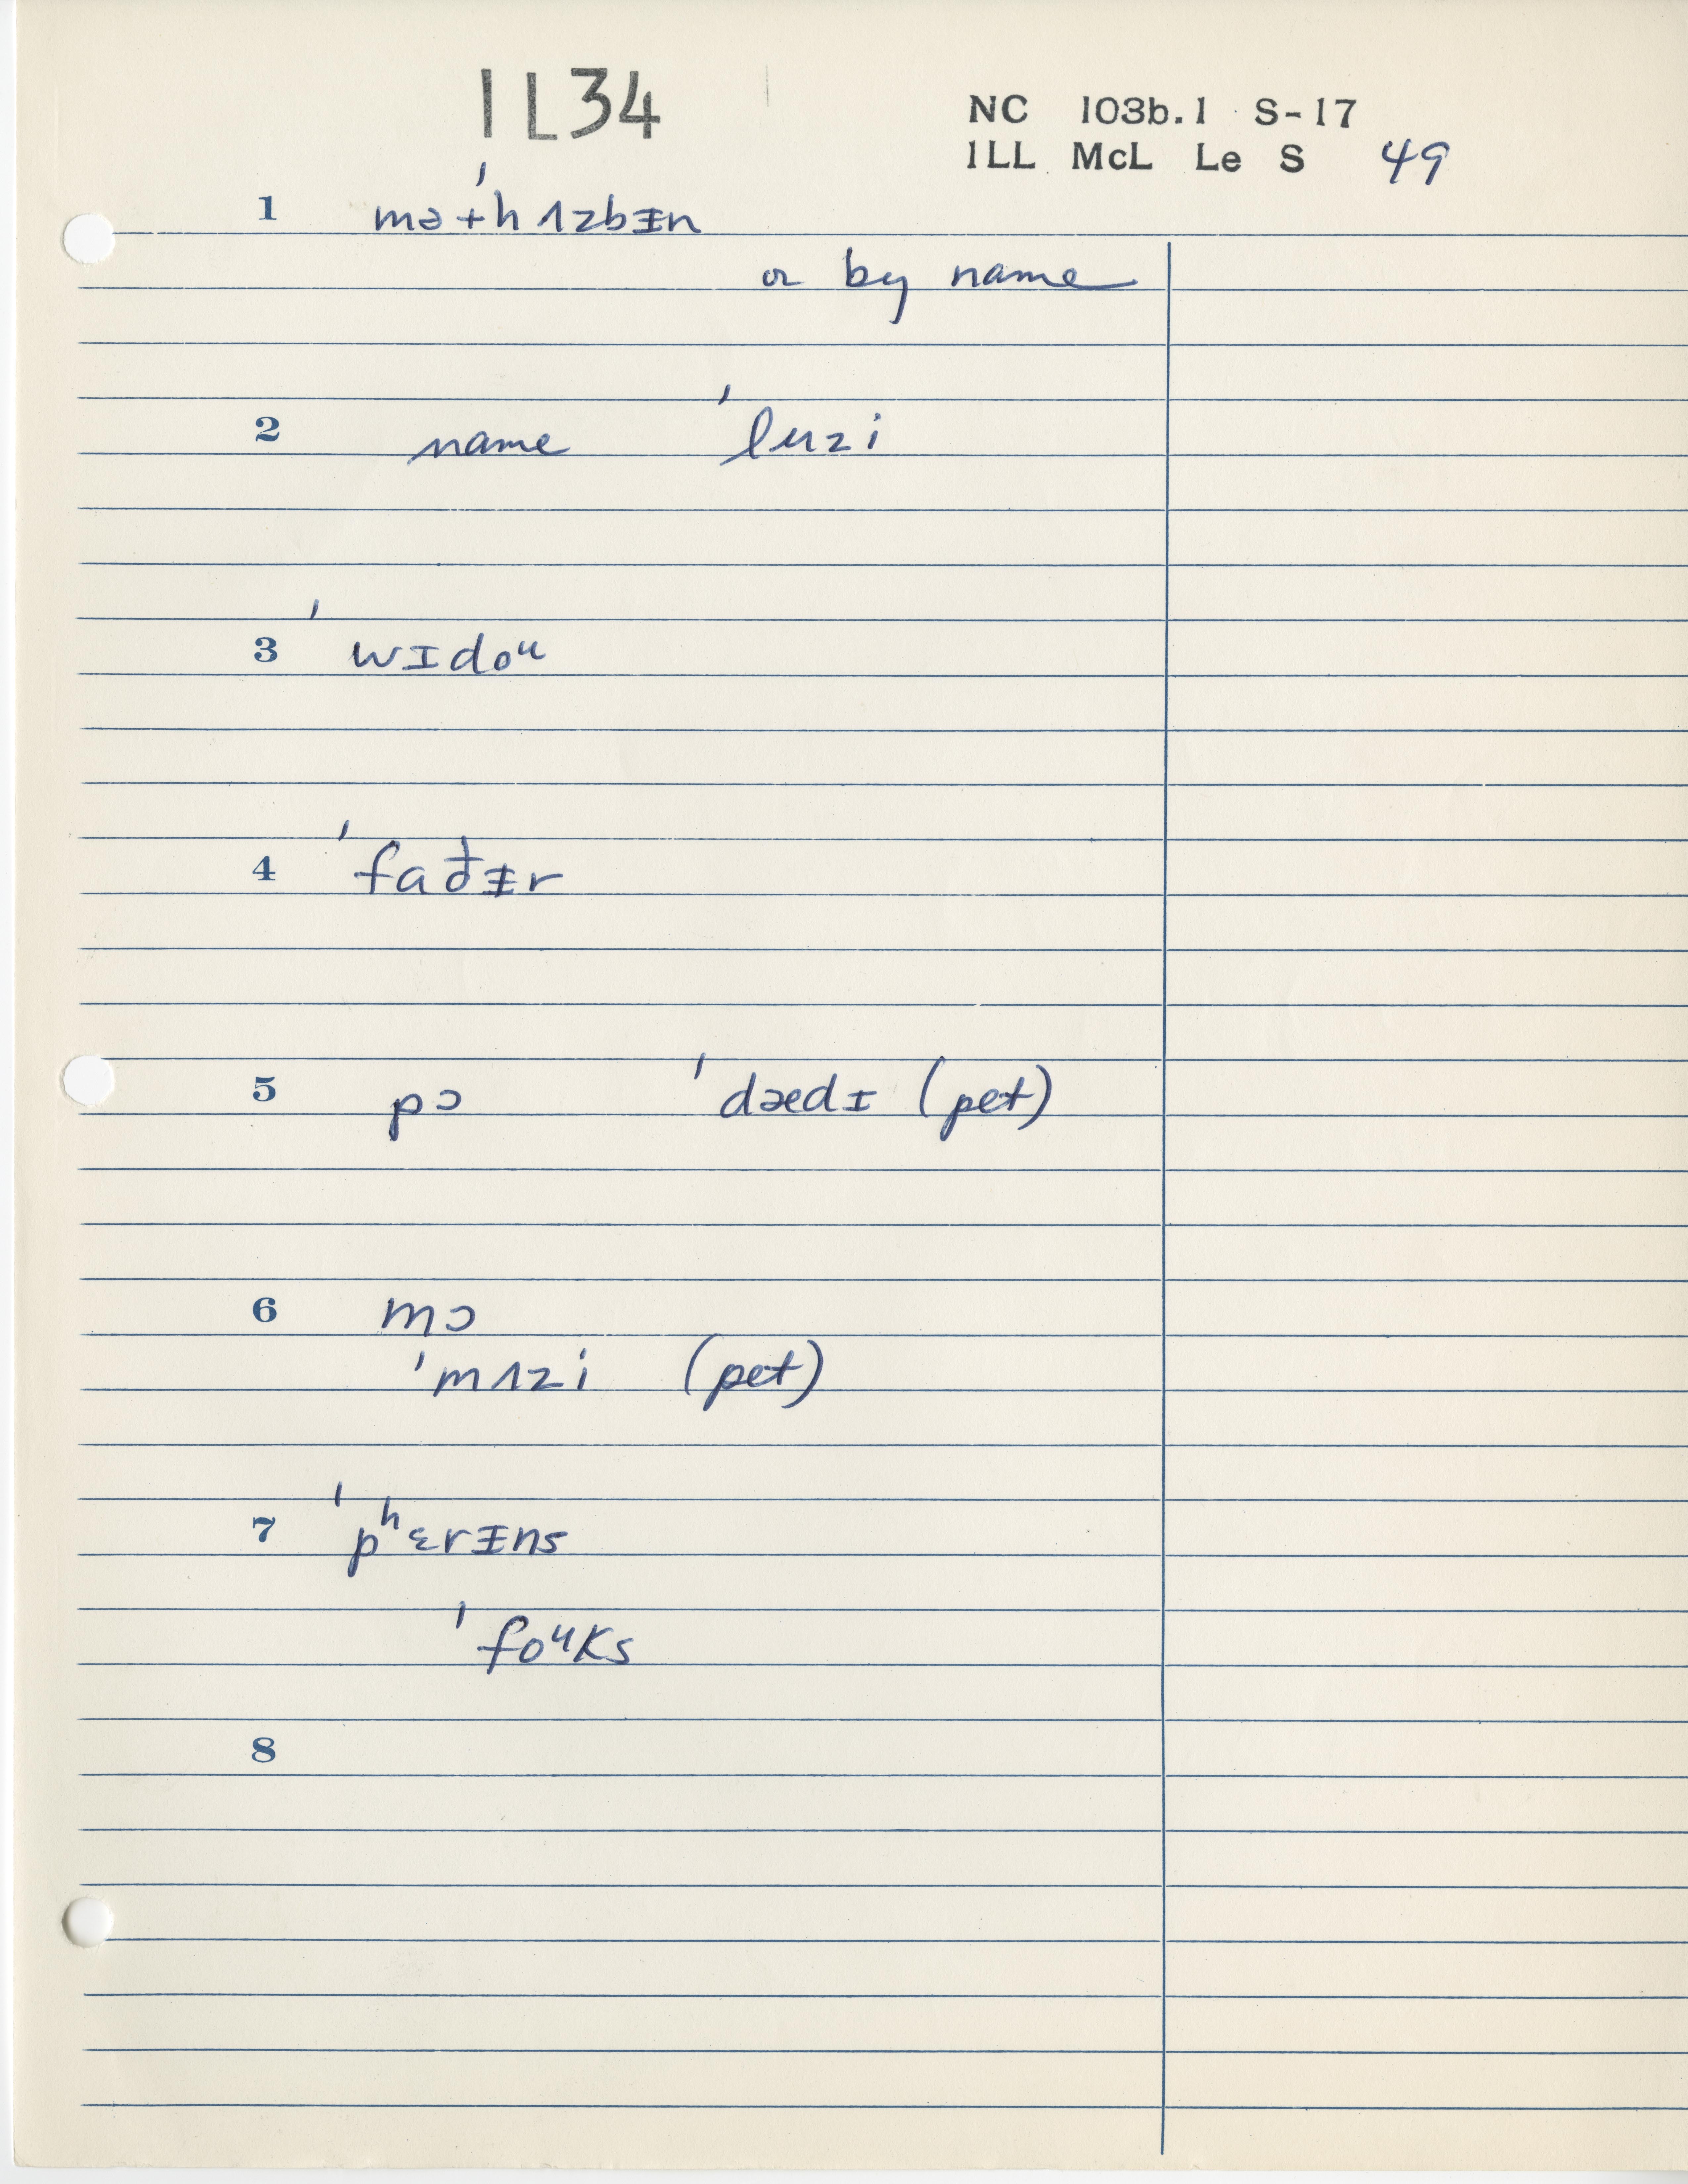 1L34
NC 103b.1 S-17
ILL McL Le S 49
1 mə'thʌzbᵻn
or by name
2 name 'luzi
3 'wɪdoᵘ
4 'fađᵻr
5 pɔ 'dædɪ (pet)
6 mɔ
'mʌzi (pet)
7 'pʰɛrᵻns
'foᵘks
8